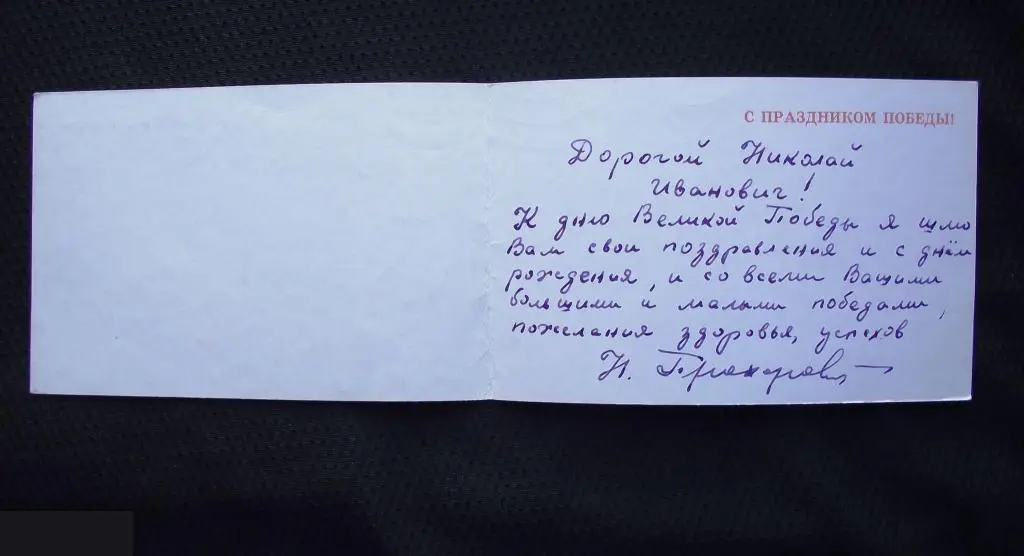 С ПРАЗДНИКОМ ПОБЕДЫ!
Дорогой Николай
Иванович!
К дню Великой Победы я шлю
Вам свои поздравления и с днём
рождения, и со всеми Вашими
большими и малыми победами,
пожелания здоровья, успехов
Н. Прохоров